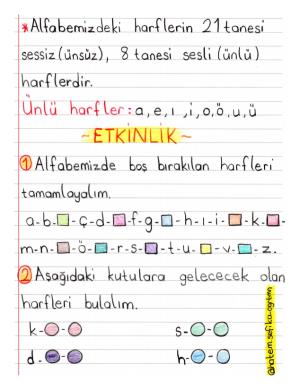 *Alfabemizdeki harflerin 21 tanesi
sessiz (ünsüz), 8 tanesi sesli (ünlü)
harflerdir.
Ünlü harfler: a, e, ı, i, o, ö, u, ü
~ETKİNLİK~
1 Alfabemizde boş bırakılan harfleri
tamamlayalım.
a-b-□-ç-d-□-f-g-□-h-ı-i-□-k-□-
m-n-□-ö-□-r-s-□-t-u-□-v-□-z.
2 Aşağıdaki kutulara gelececek olan
harfleri bulalım.
k-○-○ s-○-○
d-○-○ h-○-○